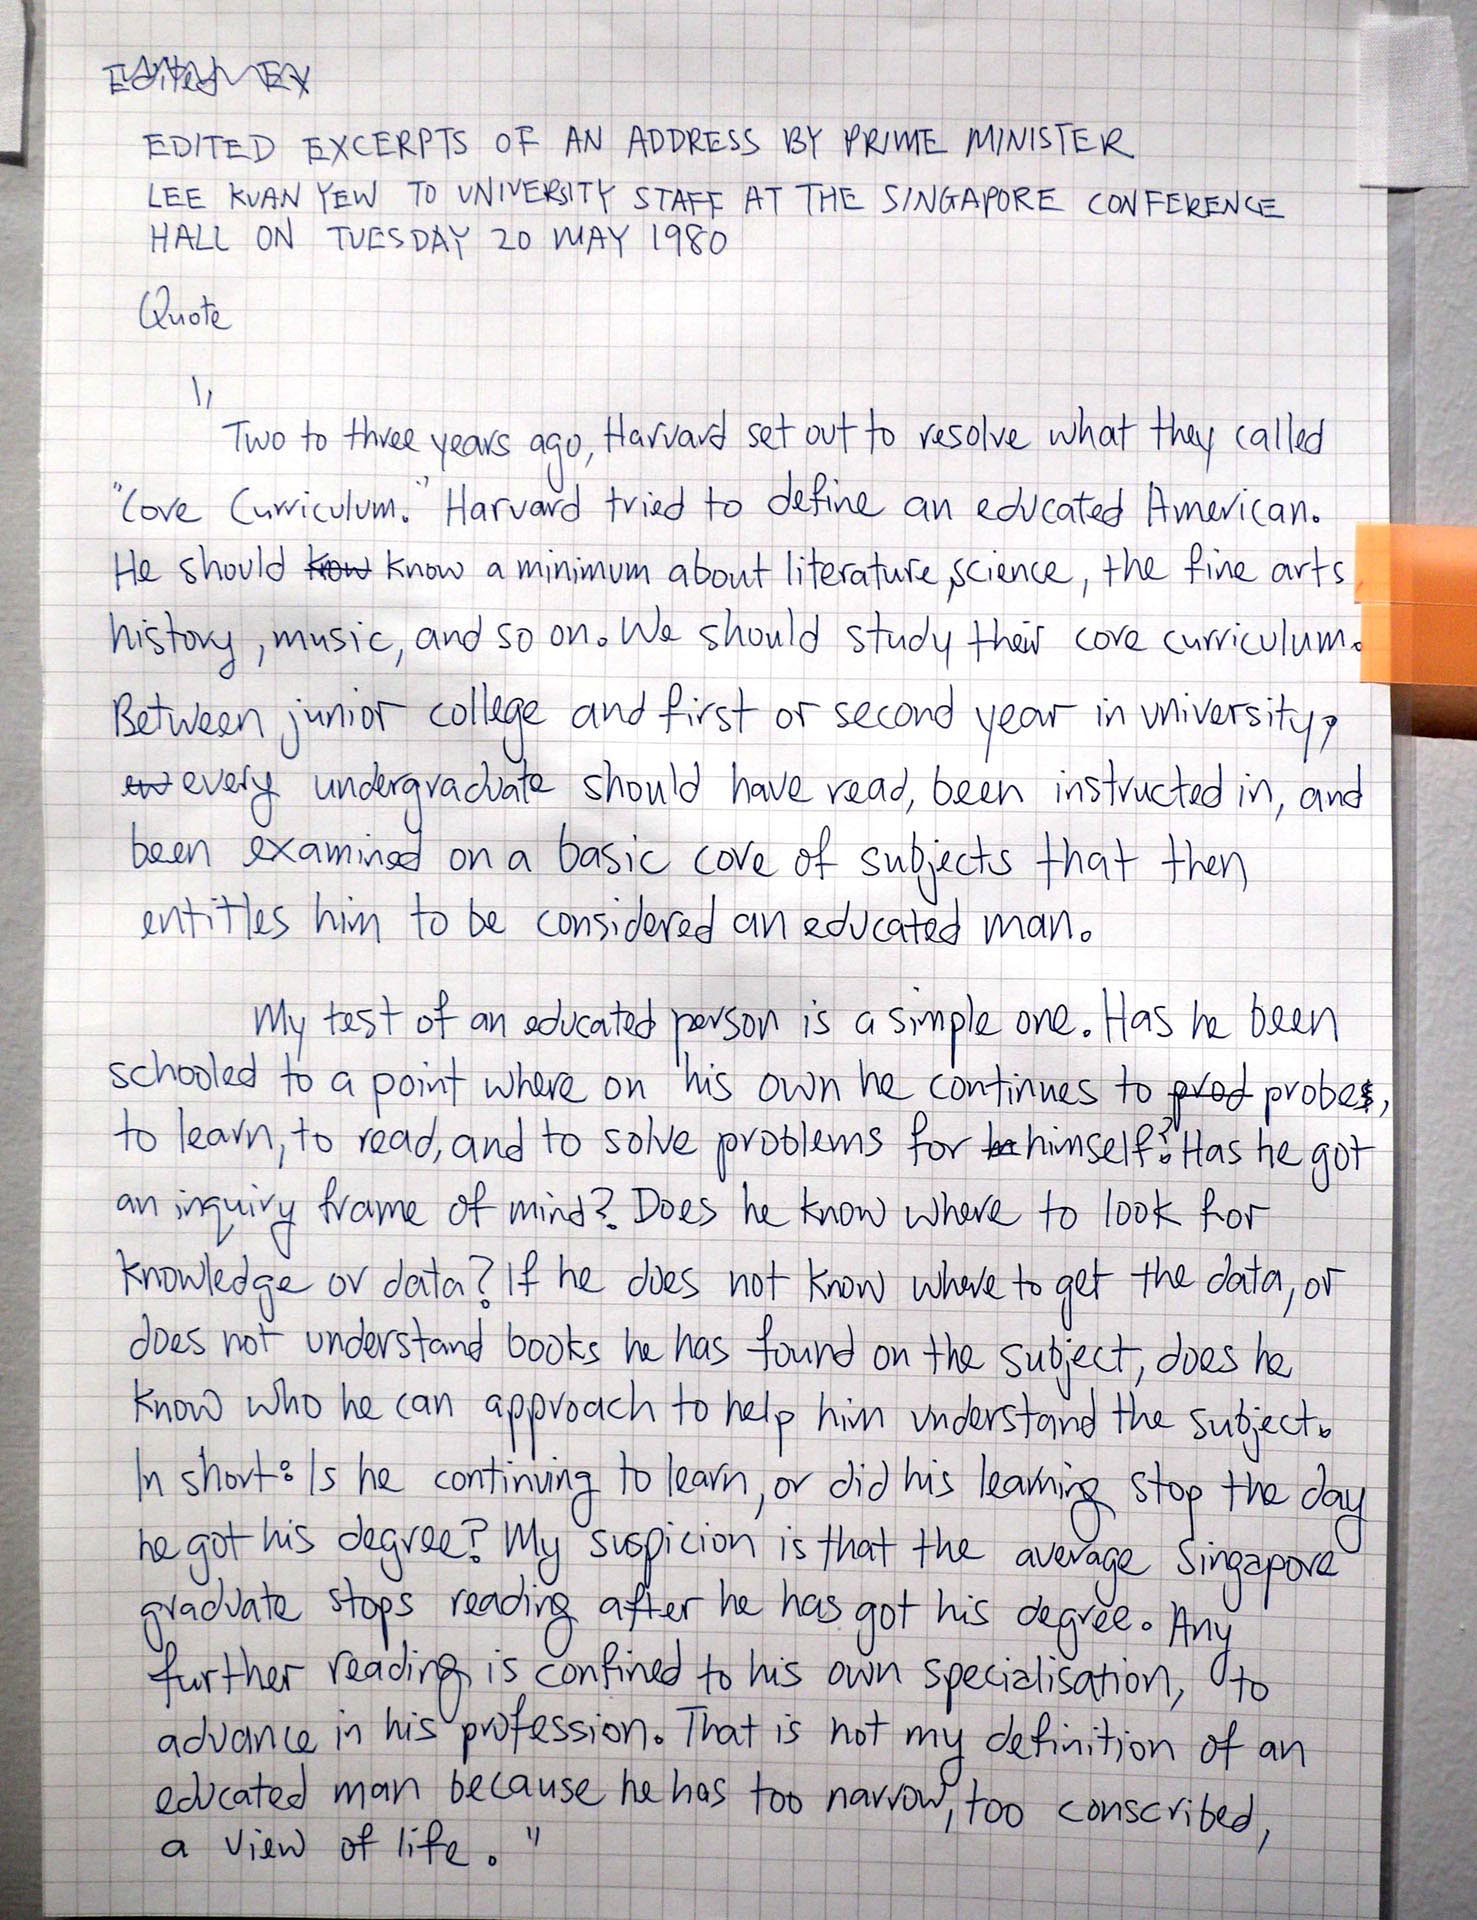 EDITED EXCERPTS OF AN ADDRESS BY PRIME MINISTER
LEE KUAN YEW TO UNIVERSITY STAFF AT THE SINGAPORE CONFERENCE
HALL ON TUESDAY 20 MAY 1980
Quote
"Two to three years ago, Harvard set out to resolve what they called
"Core Curriculum." Harvard tried to define an educated American.
He should know a minimum about literature, science, the fine arts
history, music, and so on. We should study their core curriculum.
Between junior college and first or second year in university,
every undergraduate should have read, been instructed in, and
been examined on a basic core of subjects that then
entitles him to be considered an educated man.
My test of an educated person is a simple one. Has he been
schooled to a point where on his own he continues to probe,
to learn, to read, and to solve problems for himself? Has he got
an inquiry frame of mind? Does he know where to look for
knowledge or data? If he does not know where to get the data, or
does not understand books he has found on the subject, does he
know who he can approach to help him understand the subject.
In short: Is he continuing to learn, or did his learning stop the day
he got his degree? My suspicion is that the average Singapore
graduate stops reading after he has got his degree. Any
further reading is confined to his own specialisation, to
advance in his profession. That is not my definition of an
educated man because he has too narrow, too conscribed,
a view of life."